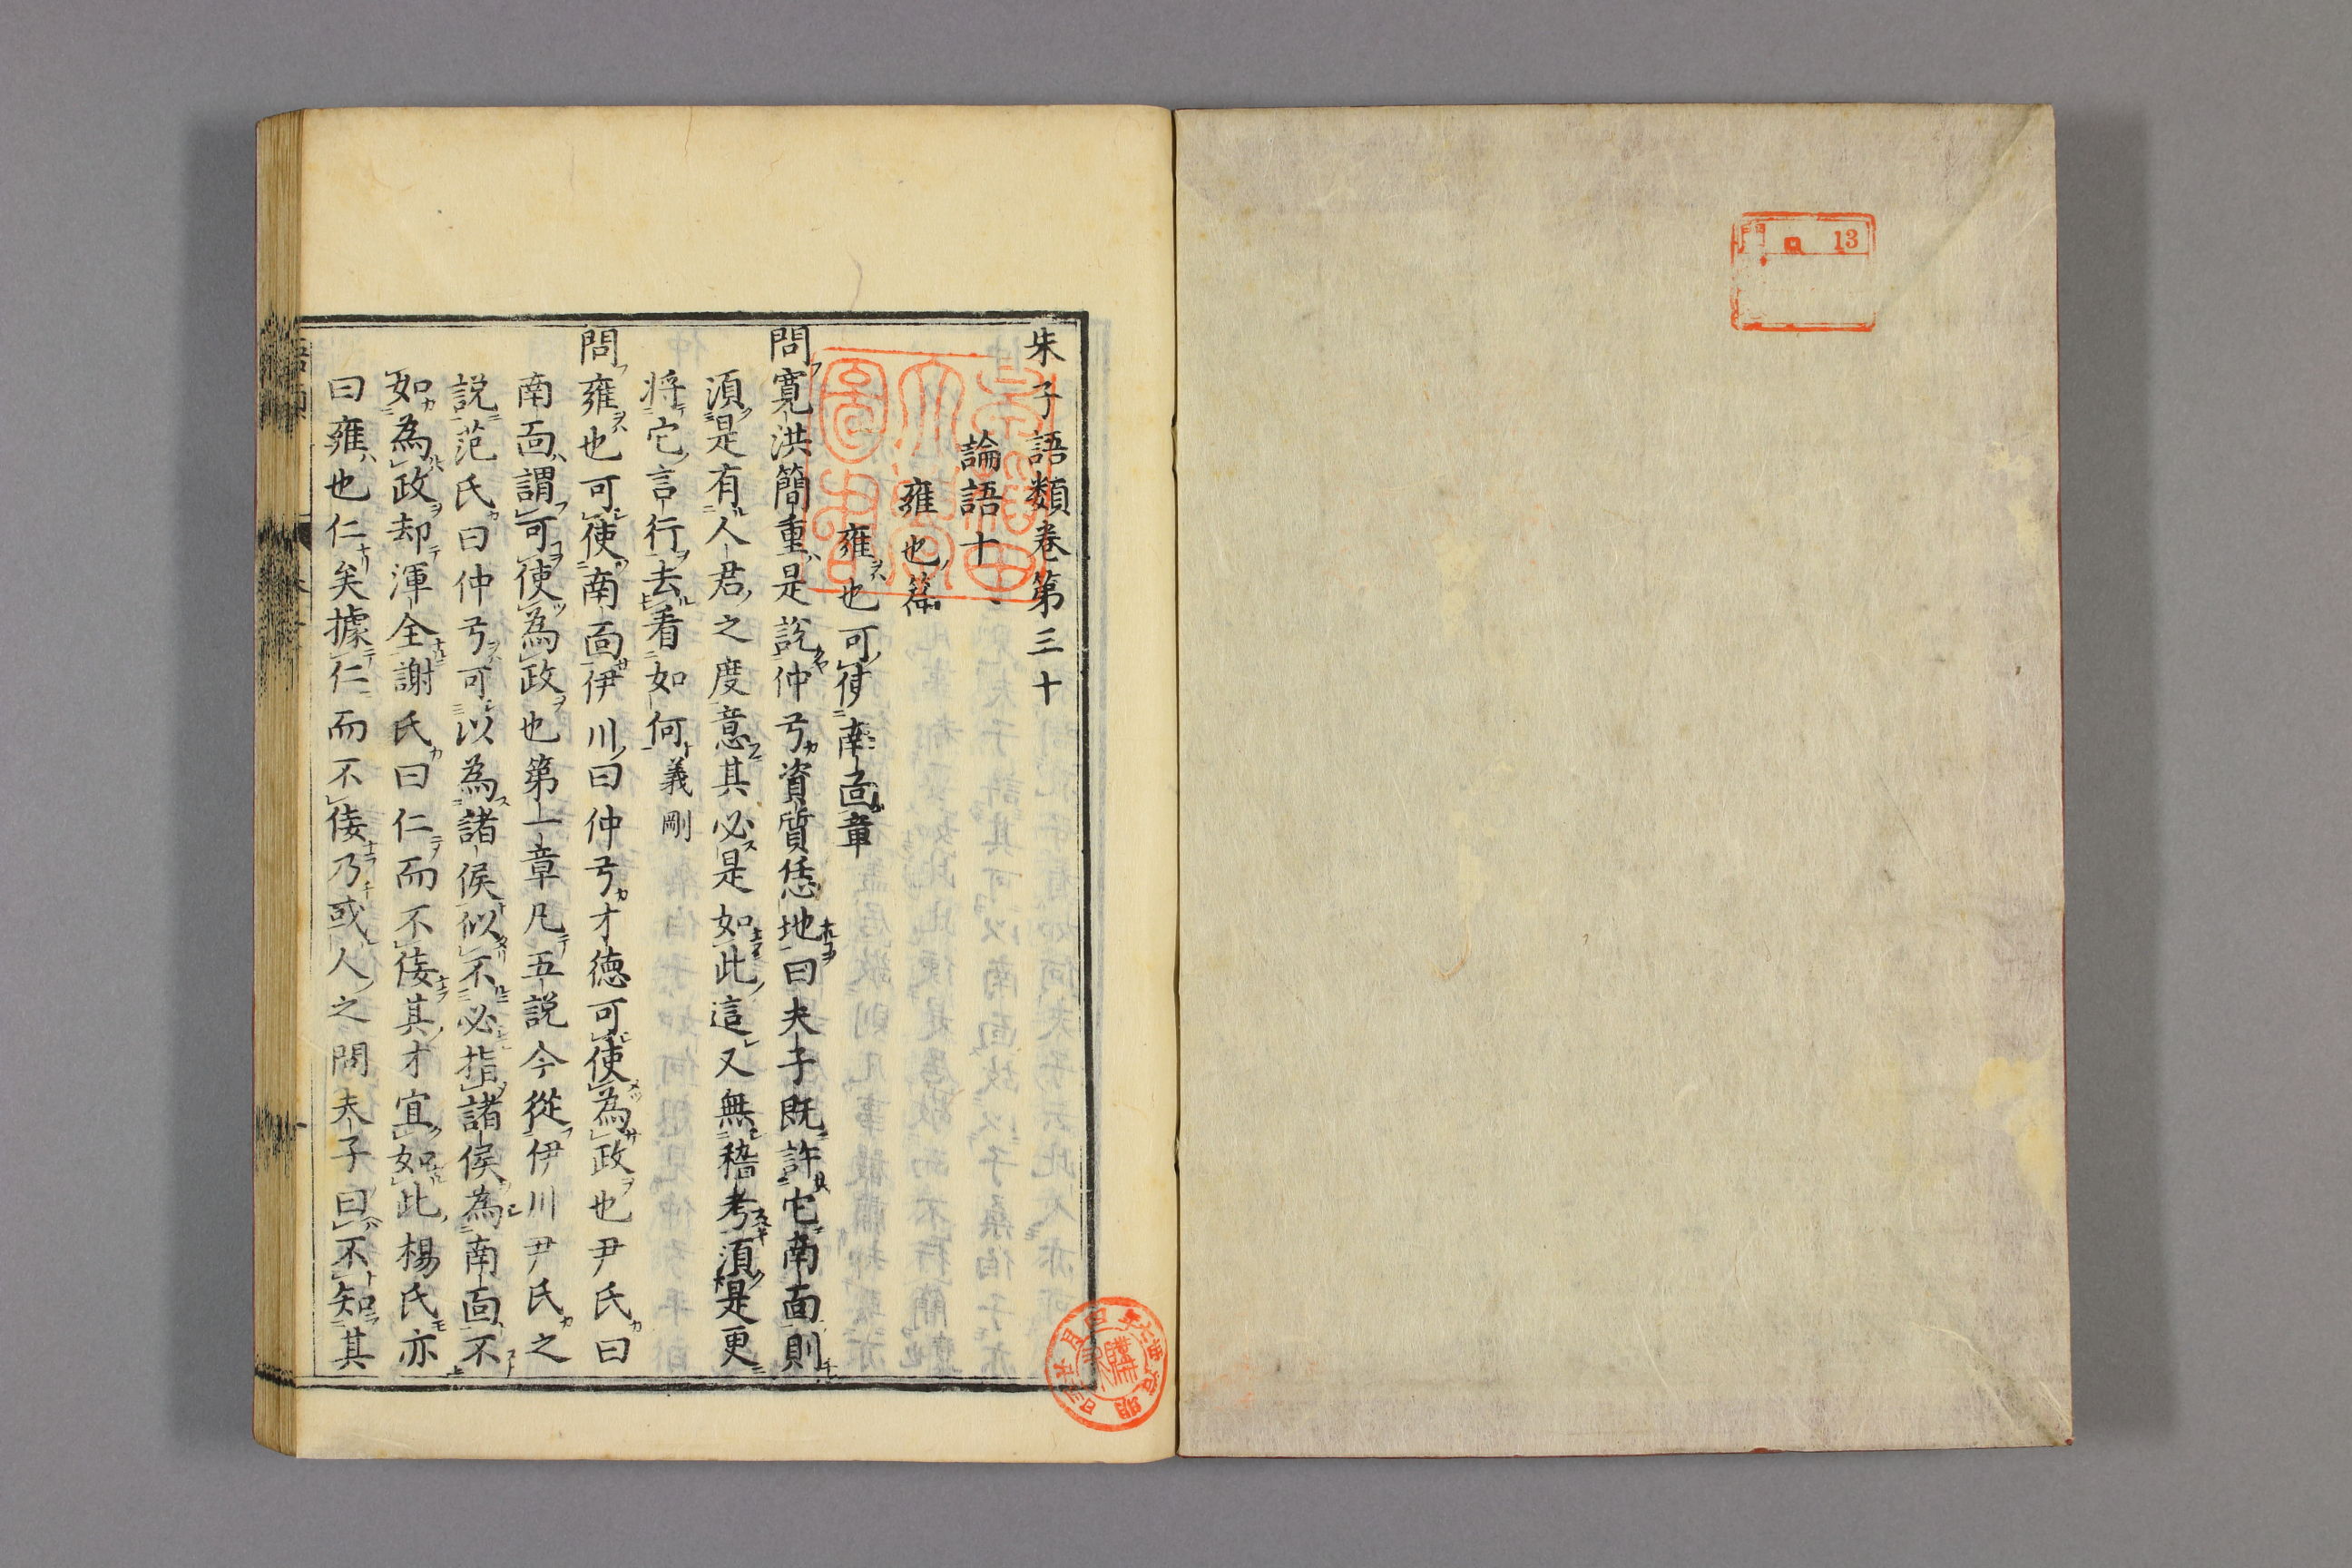 門
13
朱子語類卷第三十
論語十二
雍也篇一
雍也可使南面章
問寛洪簡重是說仲弓資質恁地曰夫子既許它南面則
須是有人君之度意其必是如此這又無稽考須是更
将它言行去看如何義剛
問雍也可使南面伊川曰仲弓才德可使為政也尹氏曰
南面謂可使為政也第一章凡五説今從伊川尹氏之
説范氏曰仲弓可以為諸侯似不必指諸侯為南面不
如為政却渾全謝氏曰仁而不佞其才宜如此楊氏亦
曰雍也仁矣據仁而不佞乃或人之問夫子曰不知其